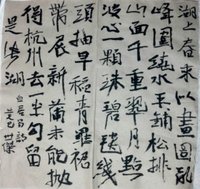 湖上春来似畫圖乱
峰圍繞水平鋪松排
山面千重翠月點
波心一顆珠碧毯綫
頭抽早稻青羅裙
帶展新蒲未能抛
得杭州去一半勾留
是此湖
白居易詩
世傑